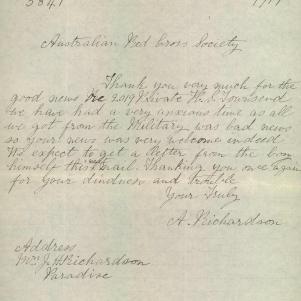 5841 1917
Australian Red Cross Society
Thank you very much for the
good news re 2019 Private W. S. Townsend
We have had a very anxious time as all
we got from the Military was bad news
so your news was very welcome indeed
We expect to get a letter from the boy
himself this next mail. Thanking you once again
for your kindness and trouble
Your Truly
A. Richardson
Address
Mrs J. A. Richardson
Paradise